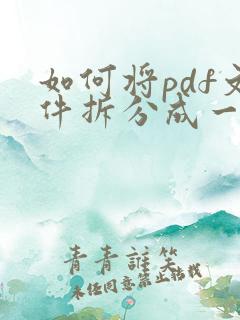 如何将pdf文
件拆分成一
青青誰笑
未经同意禁止转载